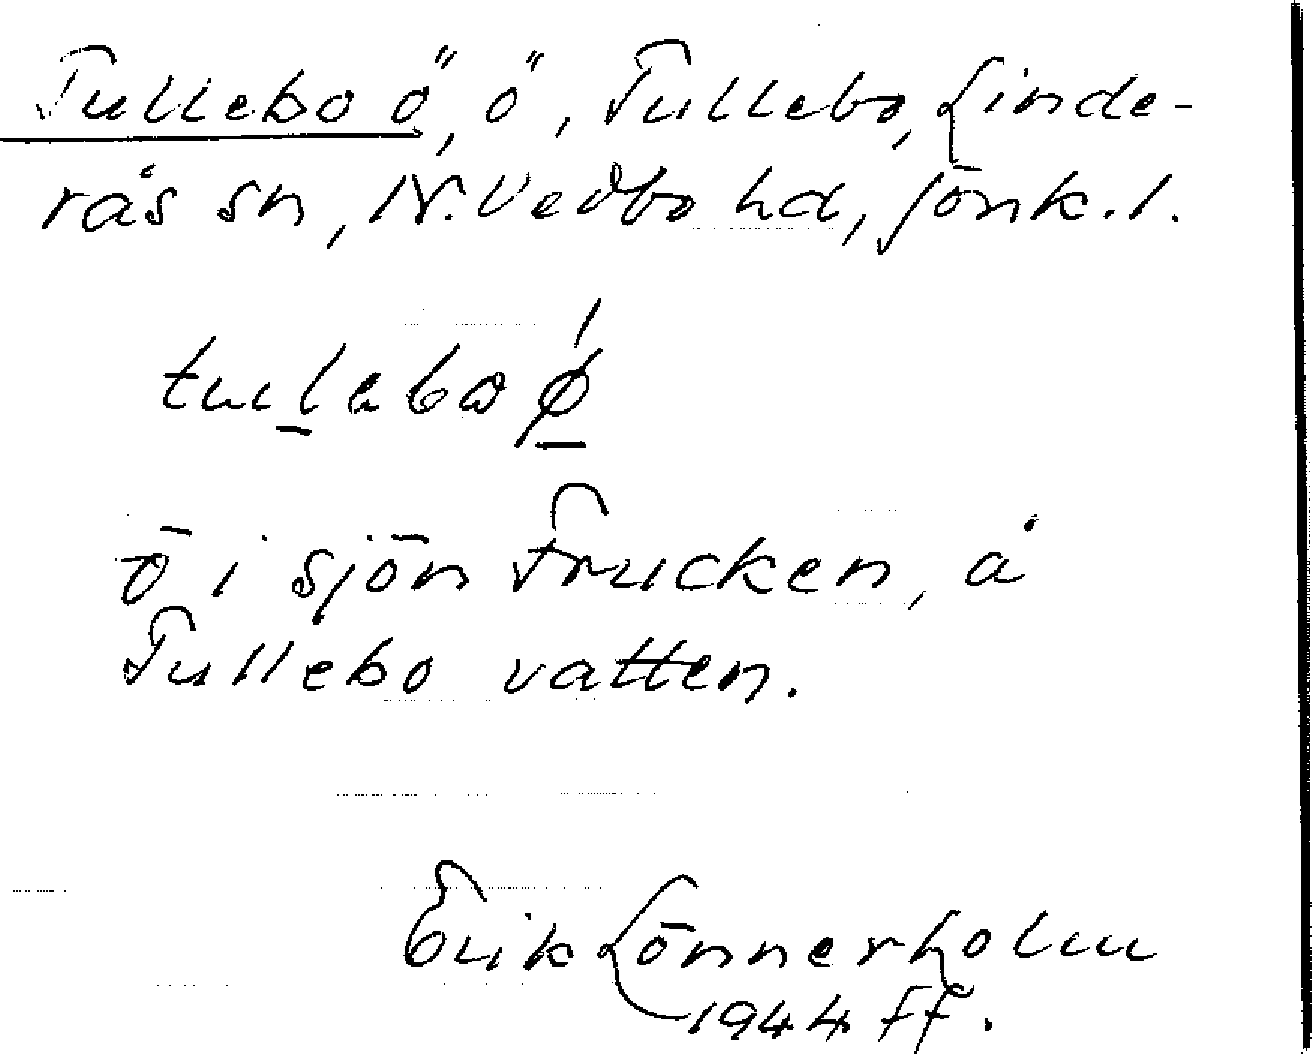 Tullebo ö, ö, Tullebo, Linde-
rås sn, N. Vedbo hd, Jönk. l.
tulebo ǿ
ö i sjön Trucken, å
Tullebo vatten.
Erik Lönnerholm
1944 ff.